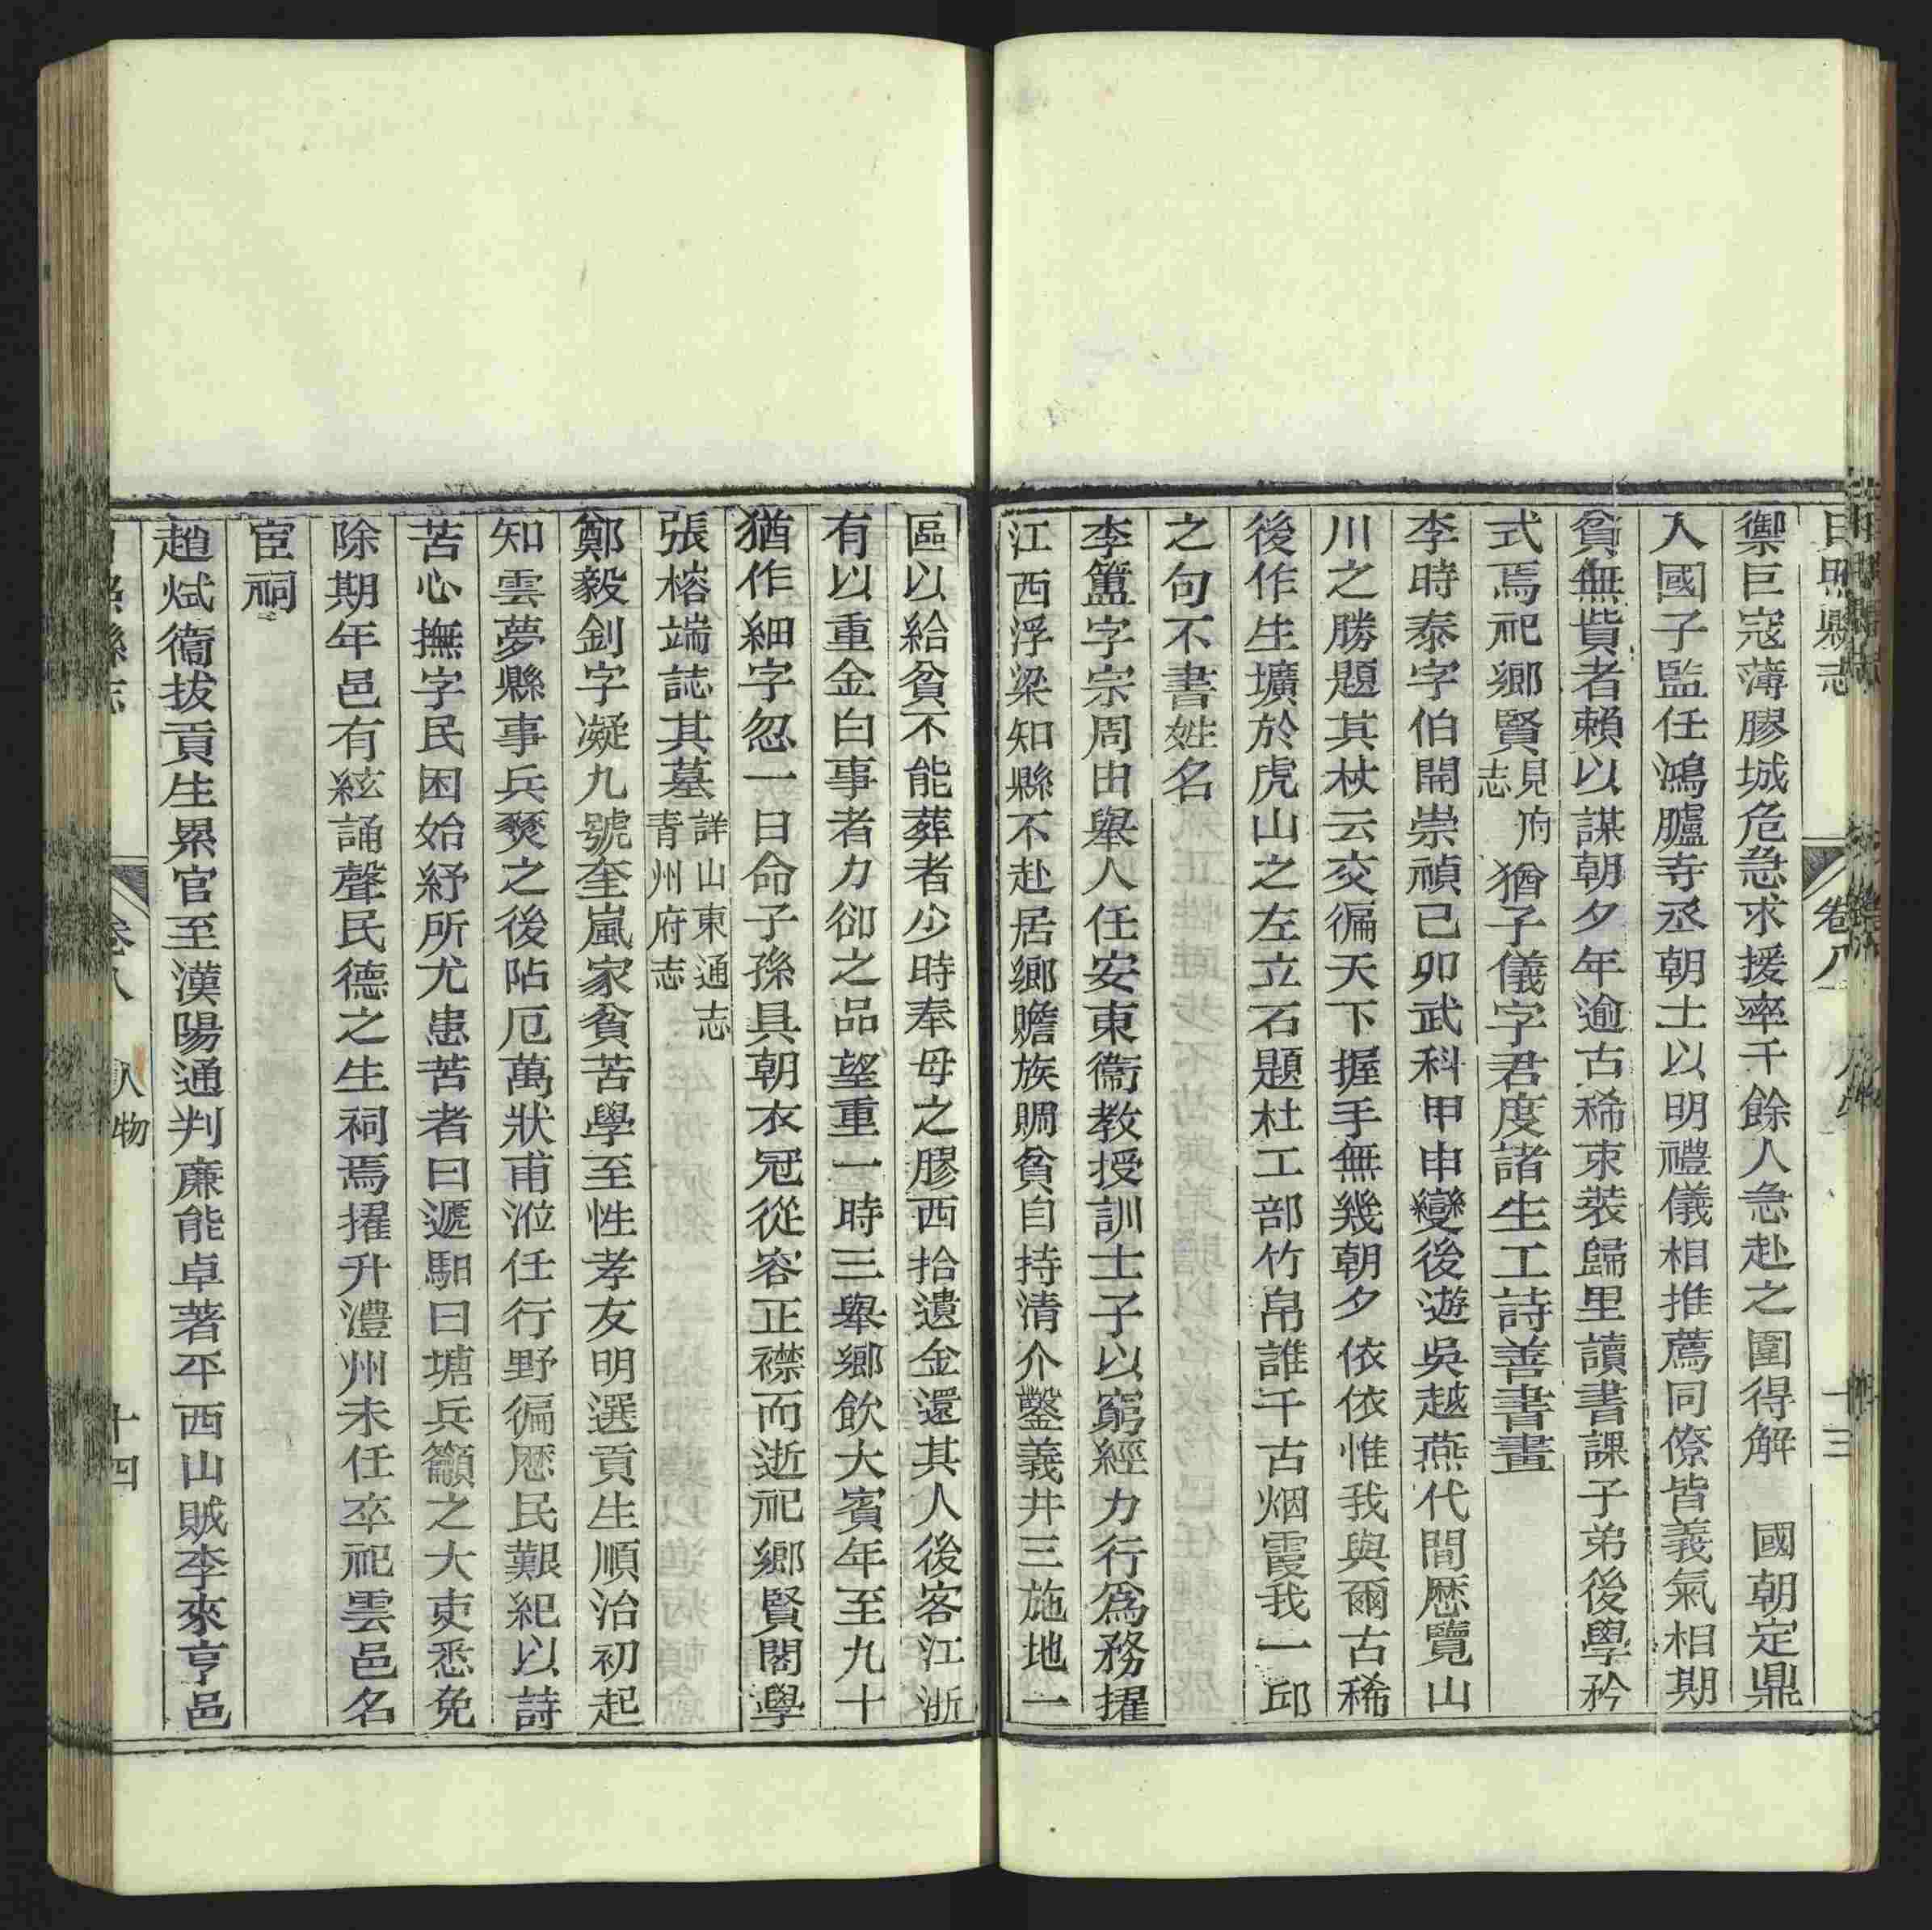 日照縣志 卷八 十三
禦巨寇薄膠城危急求援率千餘人急赴之圍得解 國朝定鼎
入國子監任鴻臚寺丞朝士以明禮儀相推薦同僚皆義氣相期
貧無貲者賴以謀朝夕年逾古稀束裝歸里讀書課子弟後學矜
式焉祀鄉賢見府志 猶子儀字君度諸生工詩善書畫
李時泰字伯開崇禎己卯武科甲申變後遊吳越燕代間歷覽山
川之勝題其杖云交徧天下握手無幾朝夕依依惟我與爾古稀
後作生壙於虎山之左立石題杜工部竹帛誰千古烟霞我一邱
之句不書姓名
李簠字宗周由舉人任安東衞教授訓士子以窮經力行爲務擢
江西浮梁知縣不赴居鄉贍族賙貧自持清介鑿義井三施地一
區以給貧不能葬者少時奉母之膠西拾遺金還其人後客江浙
有以重金白事者力卻之品望重一時三舉鄉飲大賓年至九十
猶作細字忽一日命子孫具朝衣冠從容正襟而逝祀鄉賢閣學
張榕端誌其墓詳山東通志青州府志
鄭毅釗字凝九號奎嵐家貧苦學至性孝友明選貢生順治初起
知雲夢縣事兵燹之後阽厄萬狀甫涖任行野徧歷民艱紀以詩
苦心撫字民困始紓所尤患苦者曰遞馹曰塘兵籲之大吏悉免
除期年邑有絃誦聲民德之生祠焉擢升澧州未任卒祀雲邑名
宦祠
趙斌衞拔貢生累官至漢陽通判廉能卓著平西山賊李來亨邑
日照縣志 卷八 人物 十四